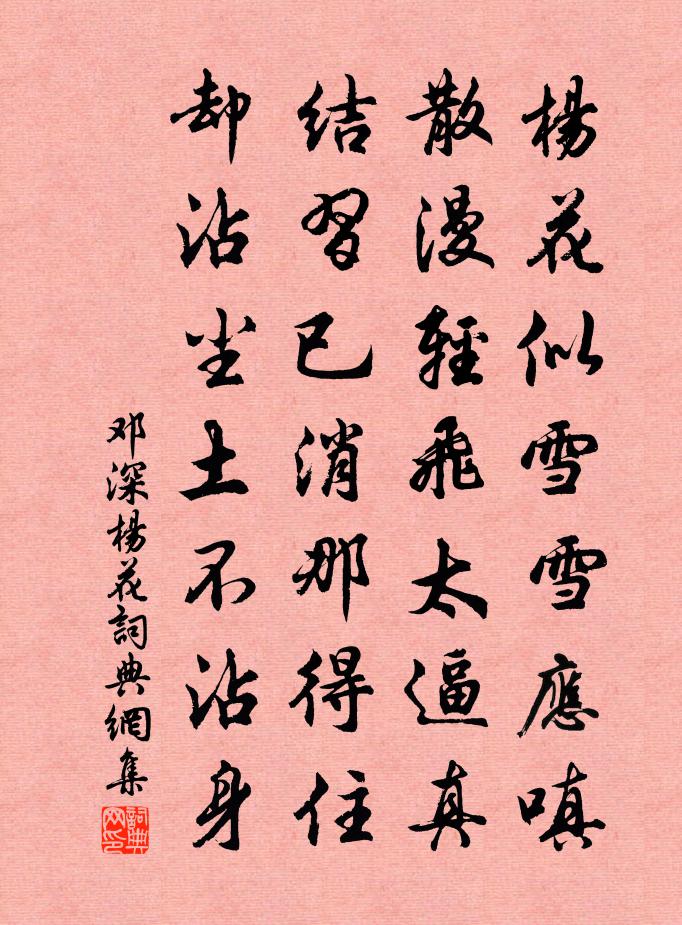 楊花似雪雪應嗔
散漫輕飛太逼真
結習已消那得住
却沾尘土不沾身
邓深楊花詞典網集
詞典网印